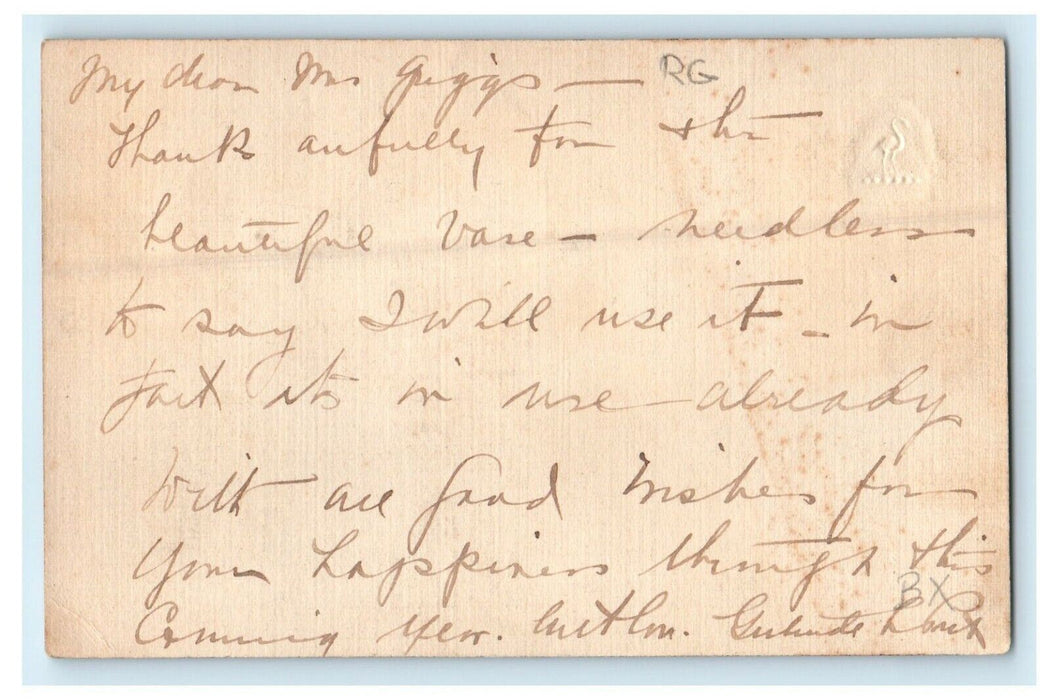 My dear Mrs Griggs — RG
Thank awfully for the
beautiful vase — needless
to say I will use it — in
fact its in use already
With all good wishes for
your happiness through this
BX
Coming year. Gertrude